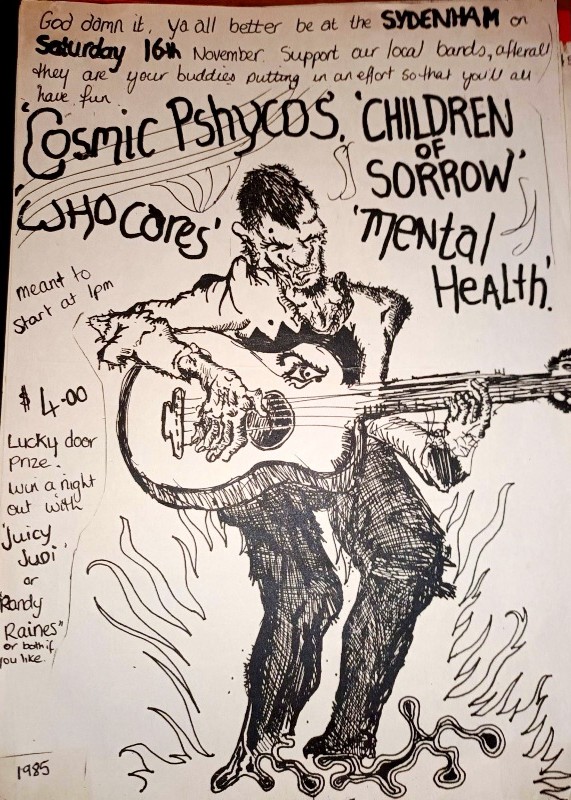 God damn it, ya all better be at the SYDENHAM on
Saturday 16th November. Support our local bands, afterall
they are your buddies putting in an effort so that you'll all
have fun.
'Cosmic Pshycos', 'CHILDREN
OF
SORROW'
'WHO Cares'
'Mental
HEALTH'.
meant to
start at 1pm
$4-00
Lucky door
Prize.
win a night
out with
'Juicy
Judi'
or
Randy
Raines"
or both if
you like.
1985